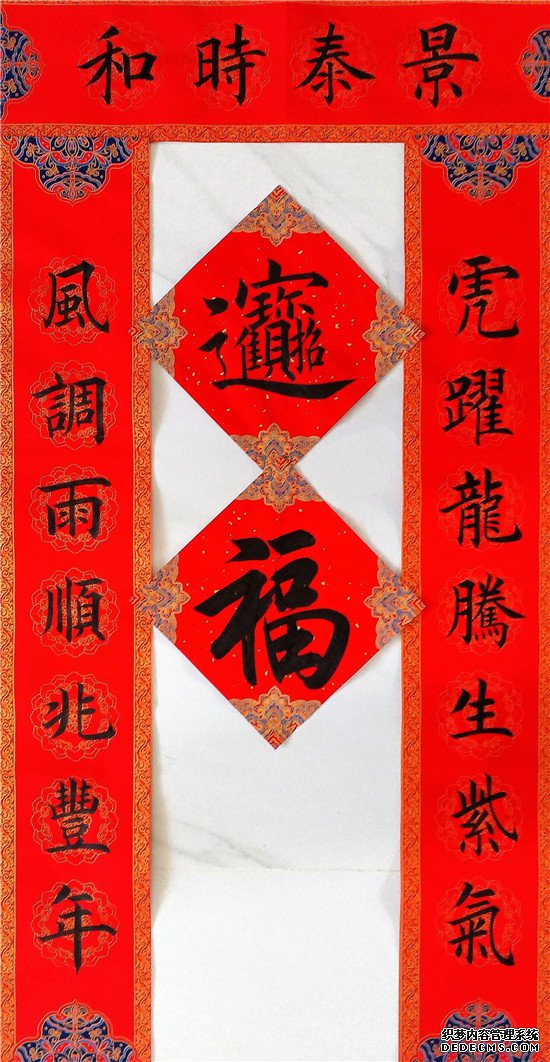 景泰時和
虎躍龍騰生紫氣
風調雨順兆豐年
招財進寶
福
织梦内容管理系统
DEDECMS.COM